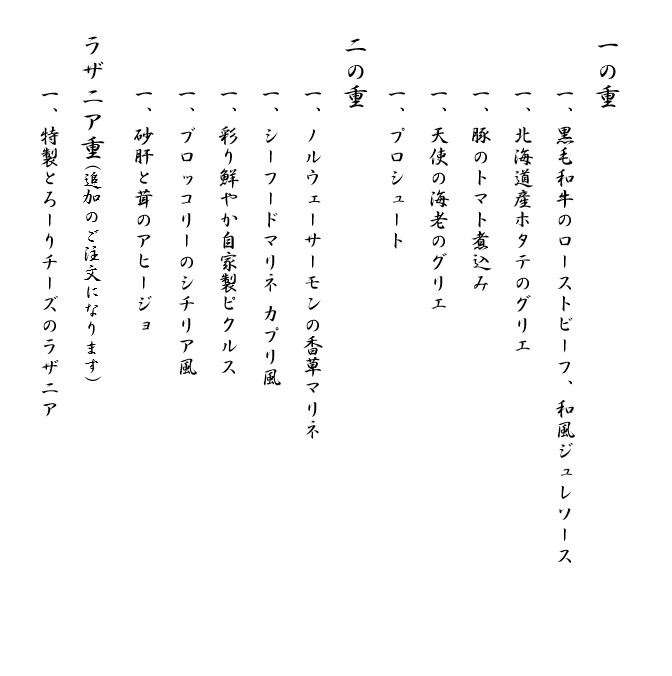 一の重
一、黒毛和牛のローストビーフ、和風ジュレソース
一、北海道産ホタテのグリエ
一、豚のトマト煮込み
一、天使の海老のグリエ
一、プロシュート
二の重
一、ノルウェーサーモンの香草マリネ
一、シーフードマリネ カプリ風
一、彩り鮮やか自家製ピクルス
一、ブロッコリーのシチリア風
一、砂肝と茸のアヒージョ
ラザニア重(追加のご注文になります)
一、特製とろーりチーズのラザニア